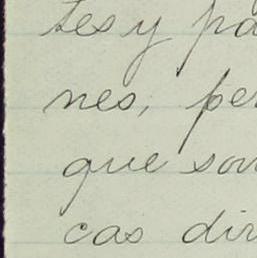 tes y pa
nes, per
que son
cas dir